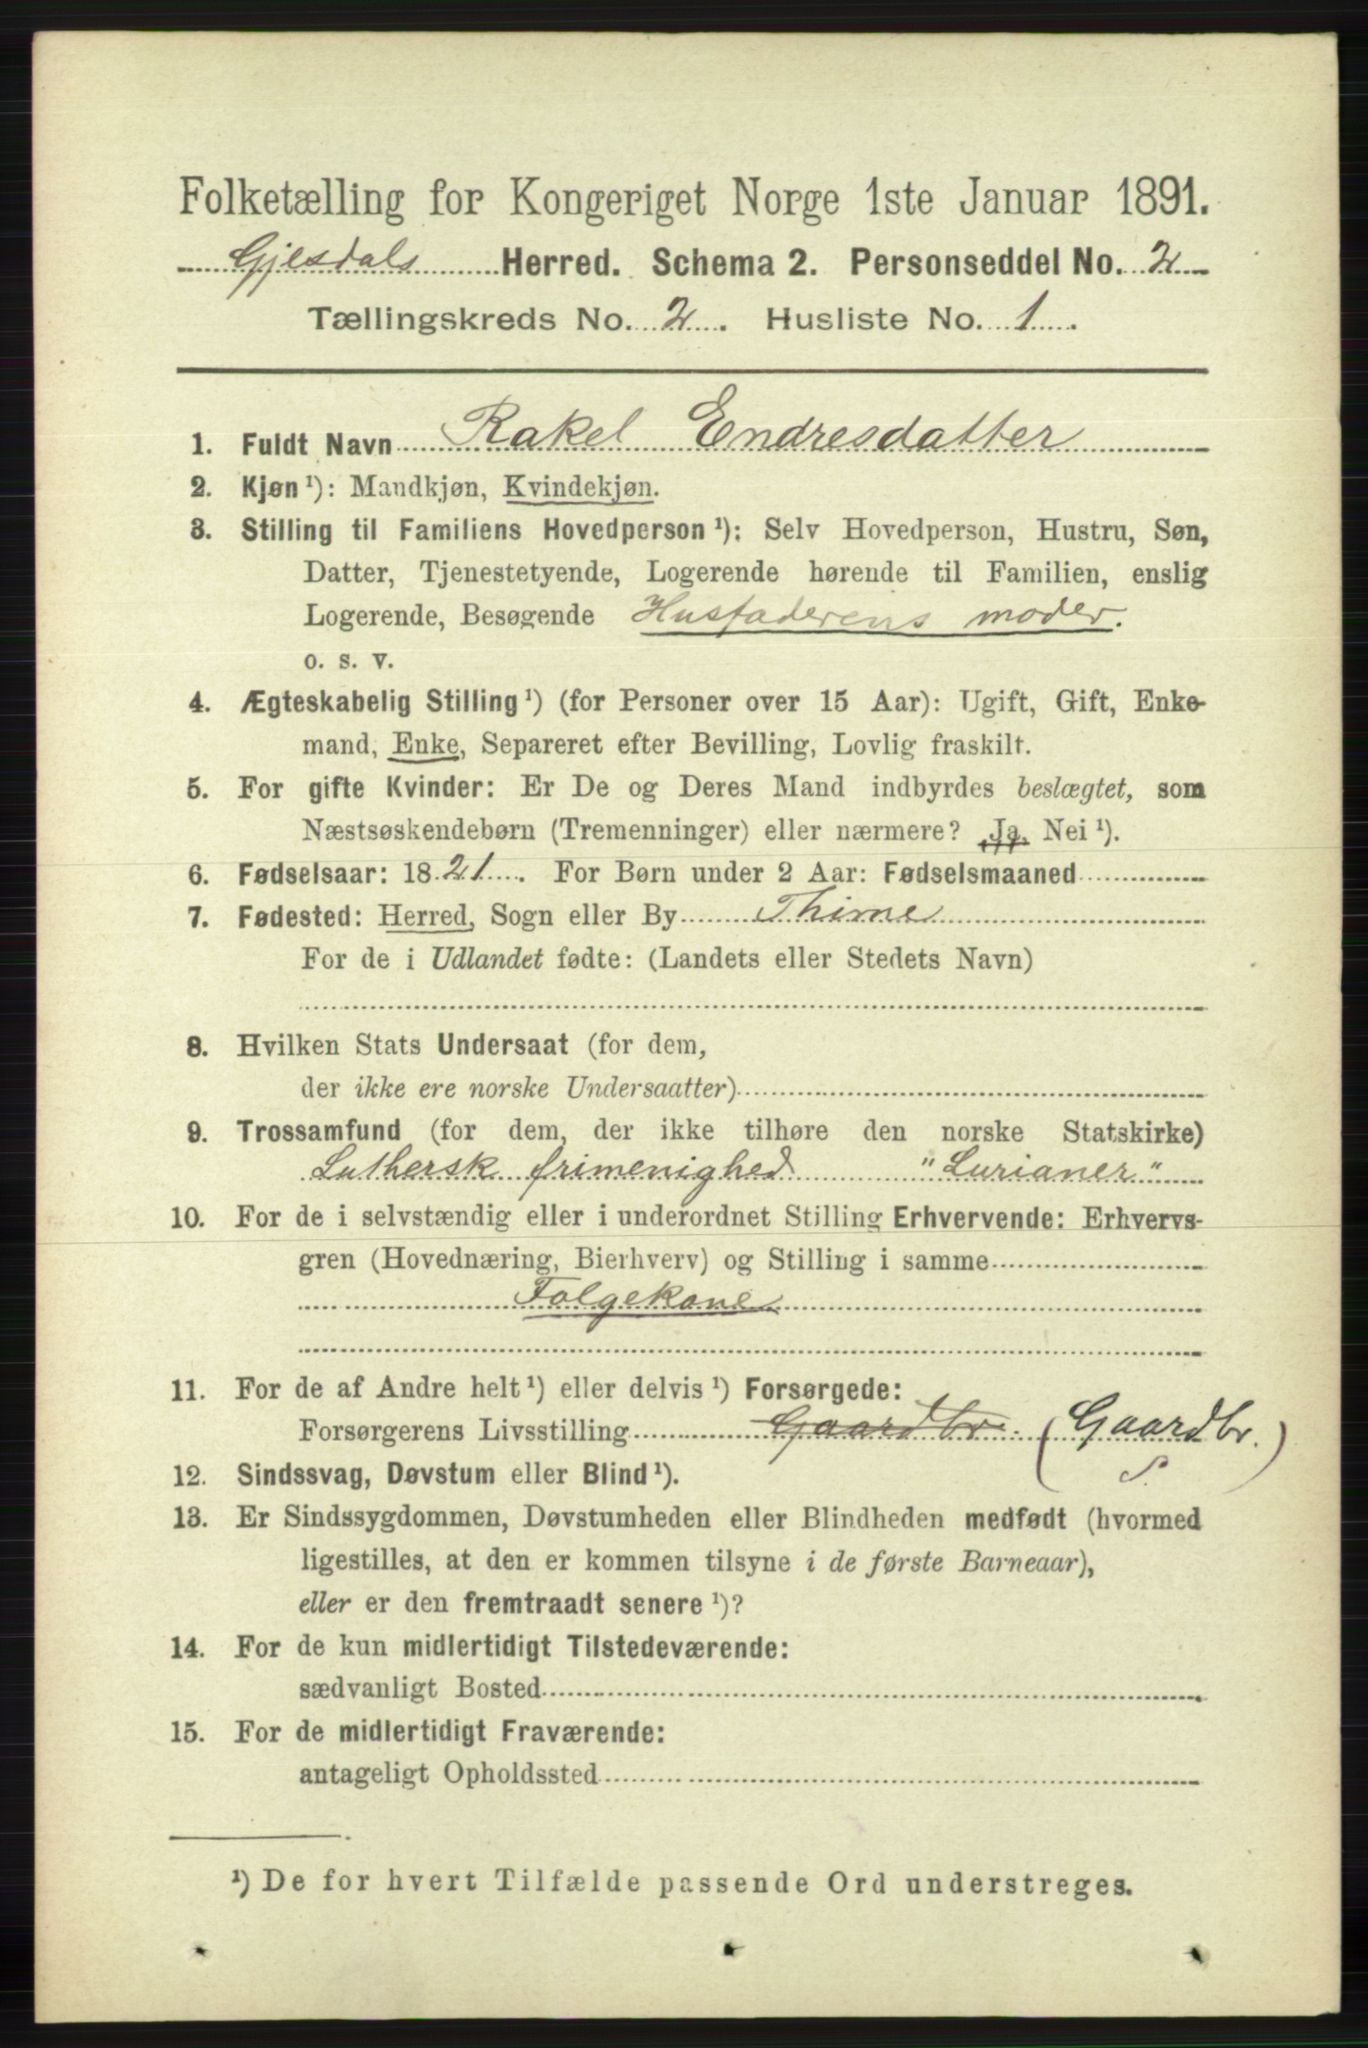 Folketælling for Kongeriget Norge 1ste Januar 1891.
Gjesdals Herred. Schema 2. Personseddel No. 2
Tællingskreds No. 2. Husliste No. 1.
1. Fuldt Navn Rakel Endresdatter
2. Kjøn ¹): Mandkjøn, Kvindekjøn.
3. Stilling til Familiens Hovedperson ¹): Selv Hovedperson, Hustru, Søn,
Datter, Tjenestetyende, Logerende hørende til Familien, enslig
Logerende, Besøgende Husfaderens moder.
o. s. v.
4. Ægteskabelig Stilling ¹) (for Personer over 15 Aar): Ugift, Gift, Enke-
mand, Enke, Separeret efter Bevilling, Lovlig fraskilt.
5. For gifte Kvinder: Er De og Deres Mand indbyrdes beslægtet, som
Næstsøskendebørn (Tremenninger) eller nærmere? Ja, Nei ¹).
6. Fødselsaar: 1821. For Børn under 2 Aar: Fødselsmaaned
7. Fødested: Herred, Sogn eller By Thime
For de i Udlandet fødte: (Landets eller Stedets Navn)
8. Hvilken Stats Undersaat (for dem,
der ikke ere norske Undersaatter)
9. Trossamfund (for dem, der ikke tilhøre den norske Statskirke)
Luthersk frimenighed "Lurianer"
10. For de i selvstændig eller i underordnet Stilling Erhvervende: Erhvervs-
gren (Hovednæring, Bierhverv) og Stilling i samme
Folgekone
11. For de af Andre helt ¹) eller delvis ¹) Forsørgede:
Forsørgerens Livsstilling Gaardbr. (Gaardbr.
S.)
12. Sindssvag, Døvstum eller Blind ¹).
13. Er Sindssygdommen, Døvstumheden eller Blindheden medfødt (hvormed
ligestilles, at den er kommen tilsyne i de første Barneaar),
eller er den fremtraadt senere ¹)?
14. For de kun midlertidigt Tilstedeværende:
sædvanligt Bosted
15. For de midlertidigt Fraværende:
antageligt Opholdssted
¹) De for hvert Tilfælde passende Ord understreges.